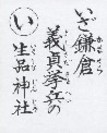 いざ鎌倉
義貞挙兵の
い 生品神社